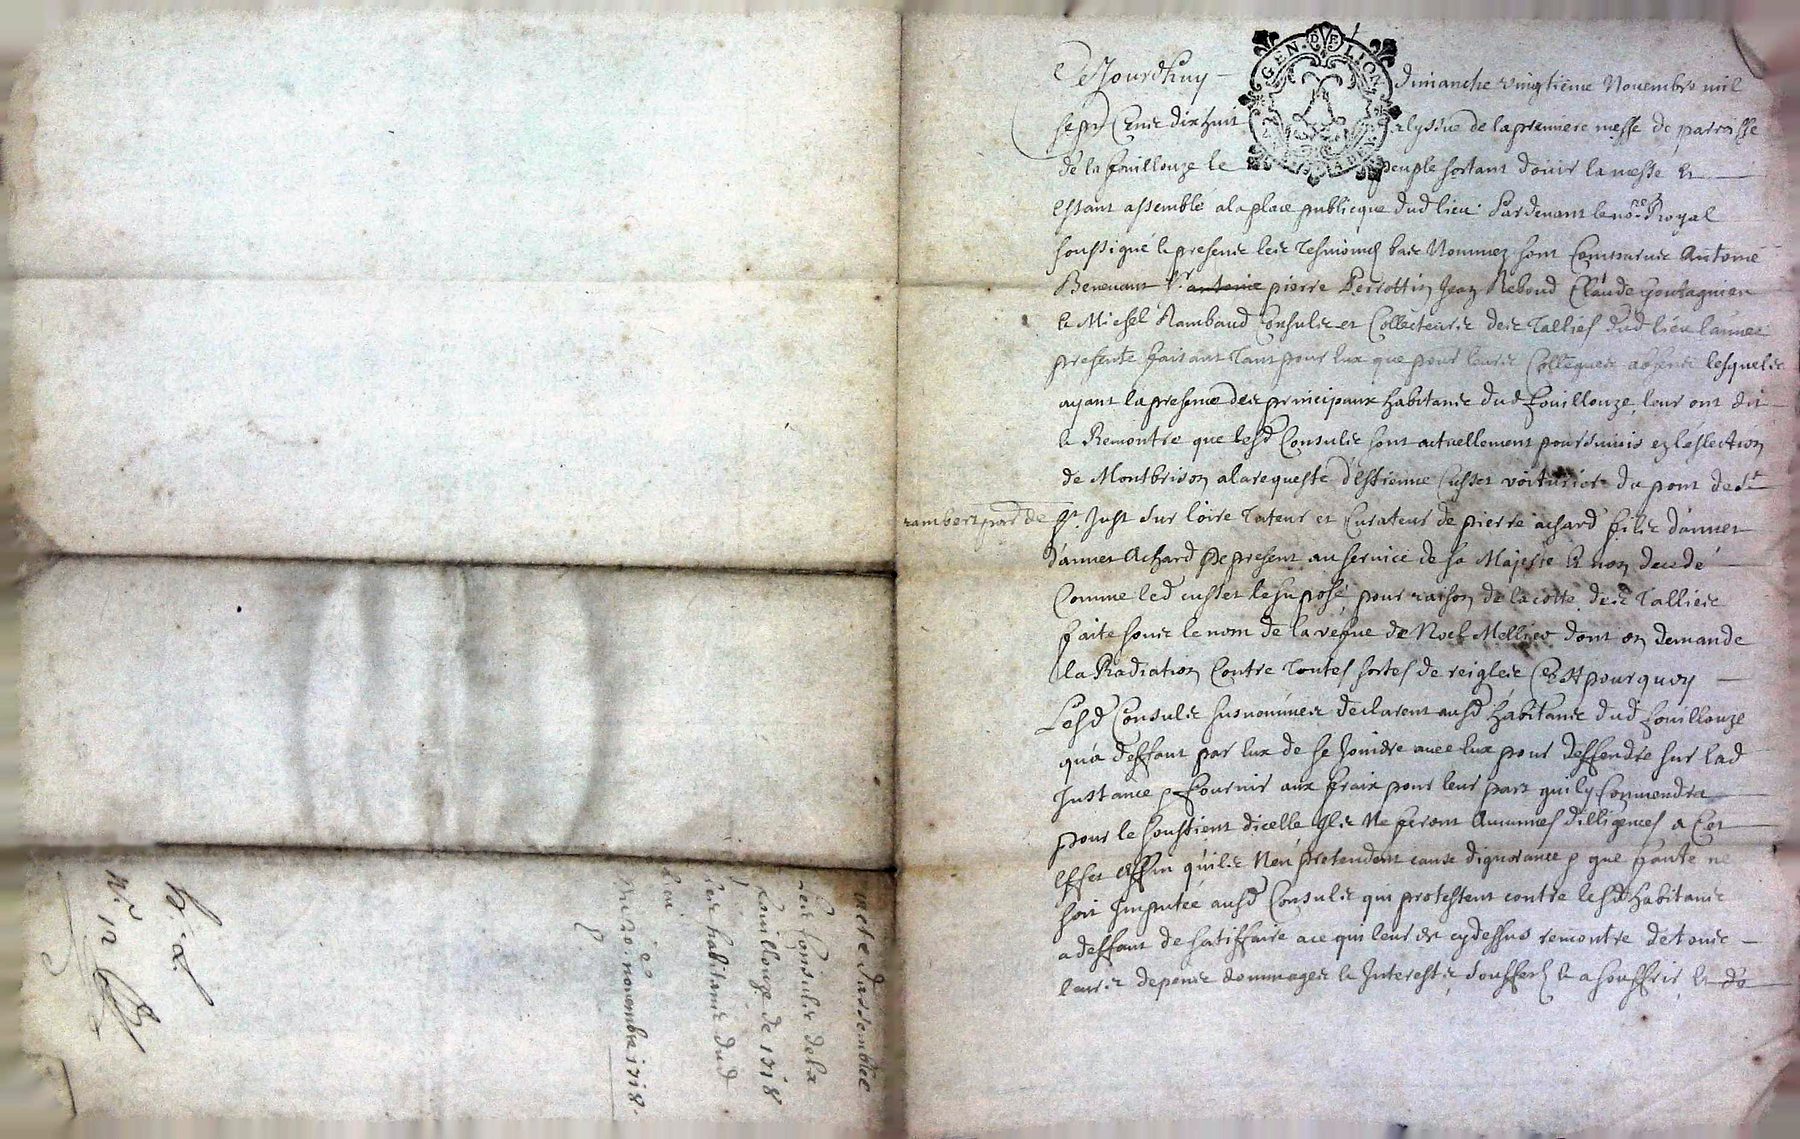 Cejourdhuy dimanche vingtième Novembre mil
sept Cent dix huit a lyssue de la premiere messe de parroisse
de la fouillouze le peuple sortant douir la messe et
estant assemblé a la place publicque dud lieu Pardevant le nore Royal
soussigné et presents les tesmoins bas Nommez sont Comparus Antoine
Benevant Sr antoine pierre Perrottin Jean Reboud Claude
et Michel Rambaud Consuls et Collecteurs des Tallies dud lieu lannee
presente faisant tant pour eux que pour leurs Collegues absens lesquels
ayant la presence des principaux habitans dud fouillouze leur ont dit
et Remontré que lesd Consuls sont actuellement poursuivis en leslection
de Montbrison a la requeste d'estienne Cusset voiturier du pont de St
rambert parr de St Just sur loire tuteur et Curateur de pierre achard fils dannet
dannet Achard De present au service de sa Majesté et non decedé
Comme led cusset le suposé pour raison de la cotte des Tallies
faite sous le nom de la vefve de Noel Mellier dont on demande
la Radiation Contre toutes sortes de reigles C'est pourquoy
Lesd Consuls susnommés declarent ausd habitans dud fouillouze
qu'a deffaut par eux de se joindre avec eux pour deffendre sur lad
Instance et fournir aux fraix pour leur part quil y conviendra
pour le soustient dicelle ils Ne feront Aucunes dilligences a Cet
effet affin qu'ils Nen pretendent cause dignorance et que faute ne
soit Imputée ausd Consuls qui protestent contre lesd habitans
a deffaut de satisfaire a ce qui leur est cydessus remontré de tous
leurs depens dommages et Interests soufferts et a souffrir et de
GEN DE LION
acte dassemblée
des Consuls de la
fouillouze de 1718
les habitans dud
lieu
Du 20e novembre 1718.
Nr 12